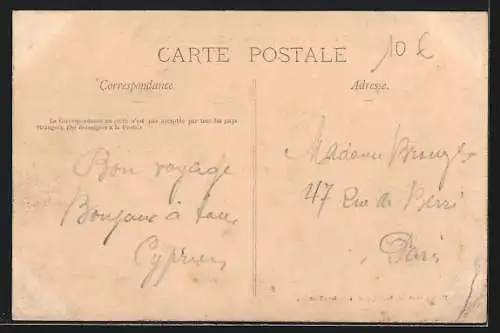 10 €
CARTE POSTALE
Correspondance
Adresse.
La Correspondance au recto n'est pas acceptée par tous les pays
étrangers. (Se renseigner à la Poste).
Bon voyage
Bonjour à tous
Cyprien
Madame
47 Rue de Berri
Paris